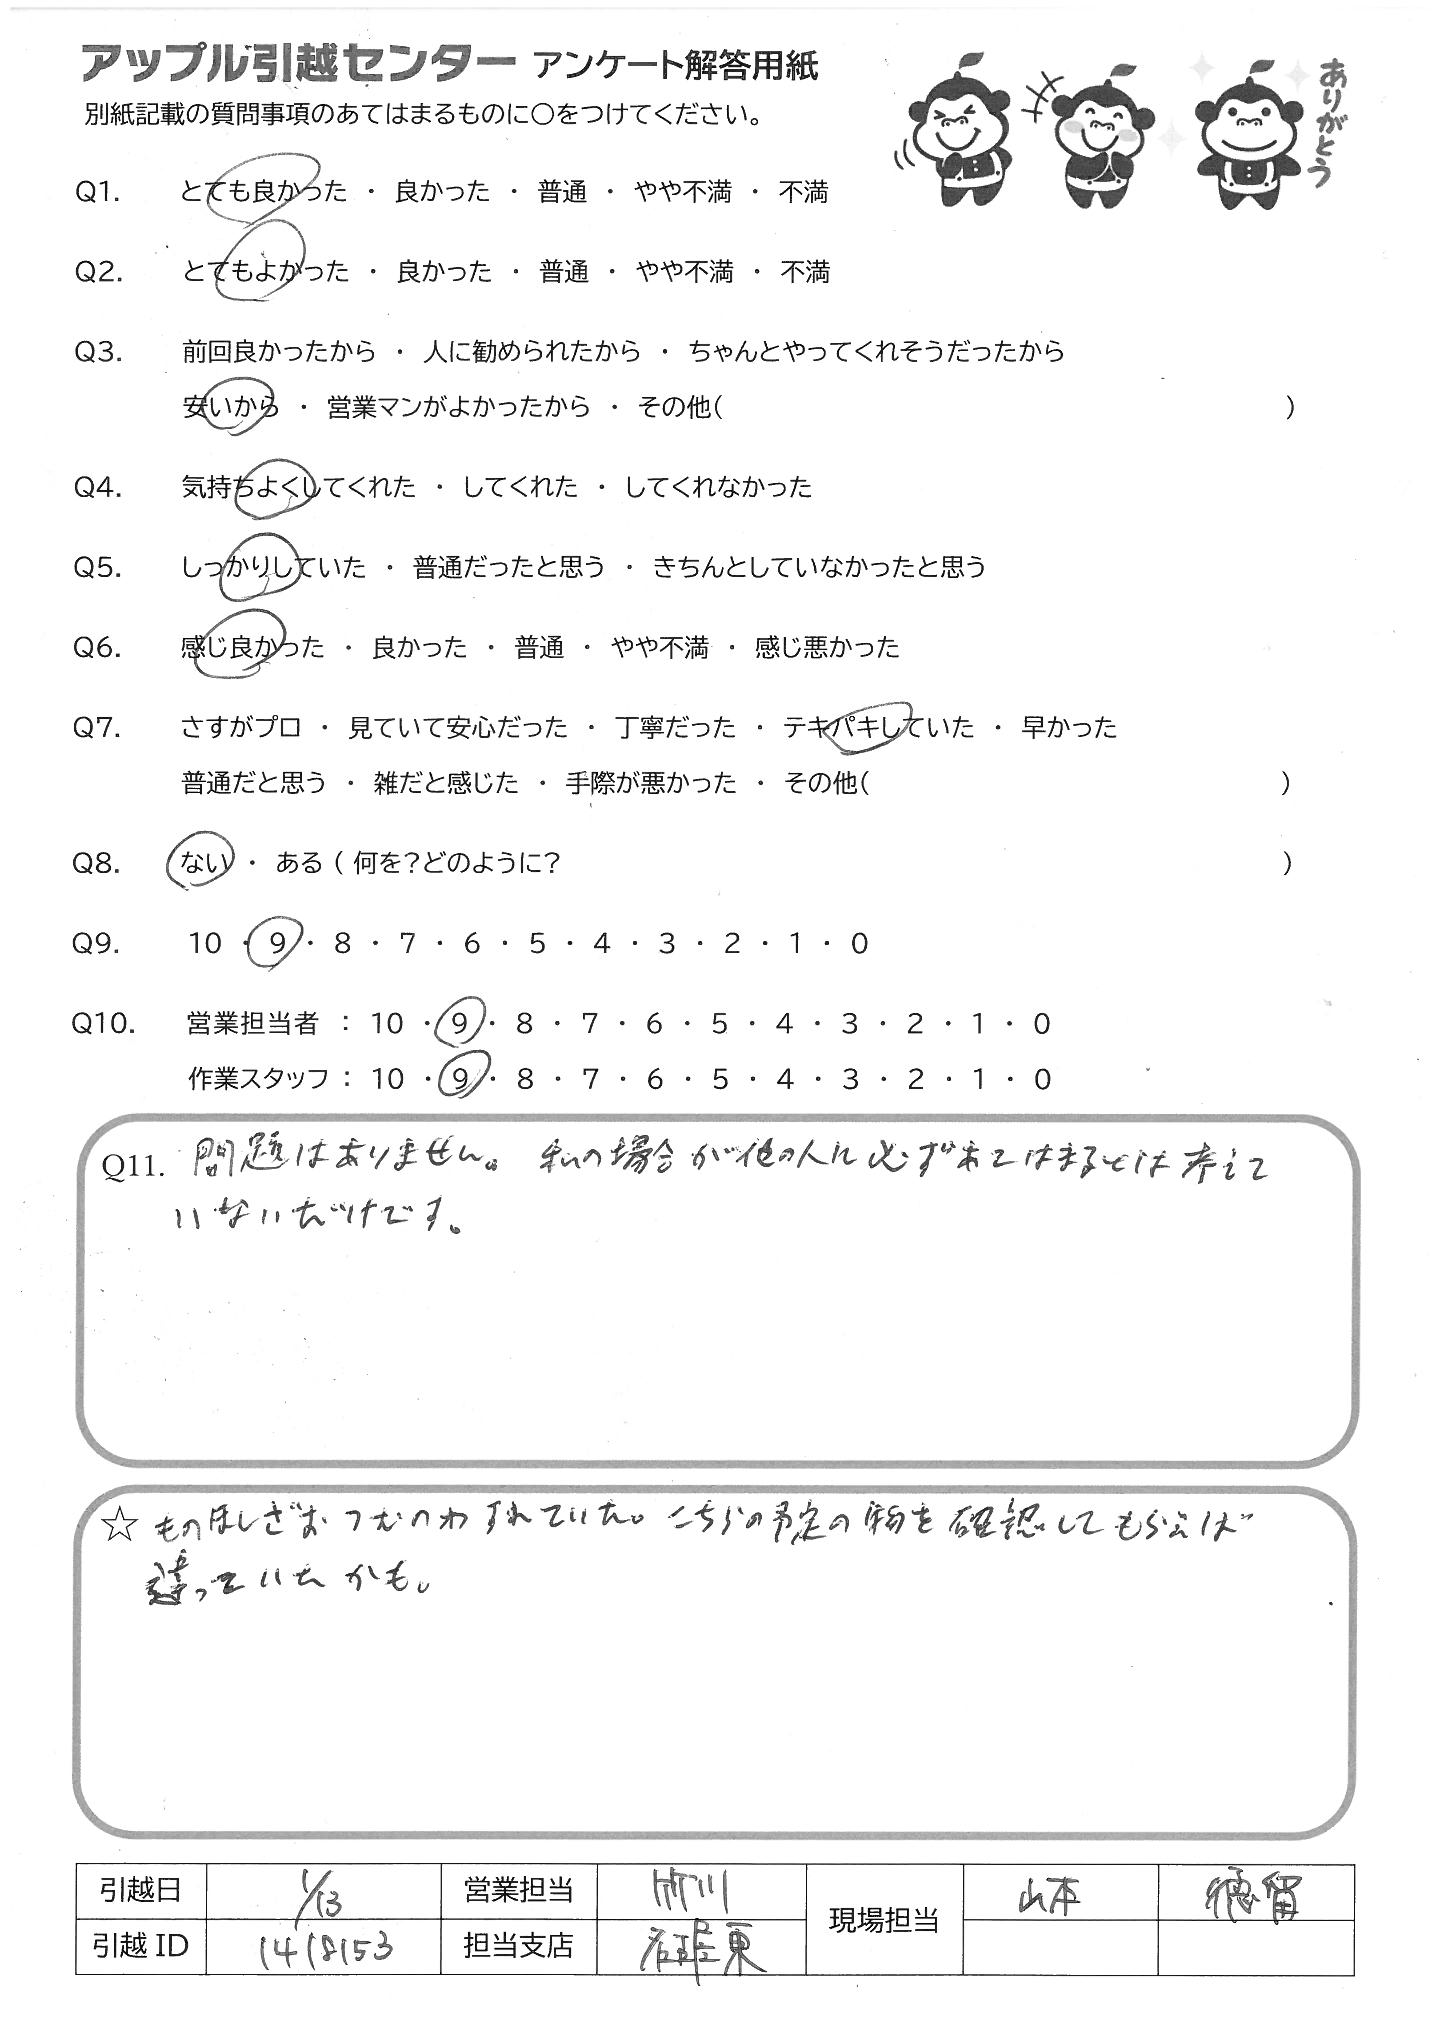 アップル引越センター アンケート解答用紙
別紙記載の質問事項のあてはまるものに○をつけてください。
ありがとう
Q1. とても良かった ・ 良かった ・ 普通 ・ やや不満 ・ 不満
Q2. とてもよかった ・ 良かった ・ 普通 ・ やや不満 ・ 不満
Q3. 前回良かったから ・ 人に勧められたから ・ ちゃんとやってくれそうだったから
安いから ・ 営業マンがよかったから ・ その他( )
Q4. 気持ちよくしてくれた ・ してくれた ・ してくれなかった
Q5. しっかりしていた ・ 普通だったと思う ・ きちんとしていなかったと思う
Q6. 感じ良かった ・ 良かった ・ 普通 ・ やや不満 ・ 感じ悪かった
Q7. さすがプロ ・ 見ていて安心だった ・ 丁寧だった ・ テキパキしていた ・ 早かった
普通だと思う ・ 雑だと感じた ・ 手際が悪かった ・ その他( )
Q8. ない ・ ある ( 何を?どのように? )
Q9. 10 ・ 9 ・ 8 ・ 7 ・ 6 ・ 5 ・ 4 ・ 3 ・ 2 ・ 1 ・ 0
Q10. 営業担当者 : 10 ・ 9 ・ 8 ・ 7 ・ 6 ・ 5 ・ 4 ・ 3 ・ 2 ・ 1 ・ 0
作業スタッフ : 10 ・ 9 ・ 8 ・ 7 ・ 6 ・ 5 ・ 4 ・ 3 ・ 2 ・ 1 ・ 0
Q11. 問題はありません。私の場合が他の人に必ずあてはまるとは考えて
いないだけです。
☆ ものほしざおつむのわすれていた。こちらの予定の物を確認してもらえば
違っていたかも。
引越日 1/13 営業担当 竹川 現場担当 山本 徳留
引越ID 1418153 担当支店 名古屋東